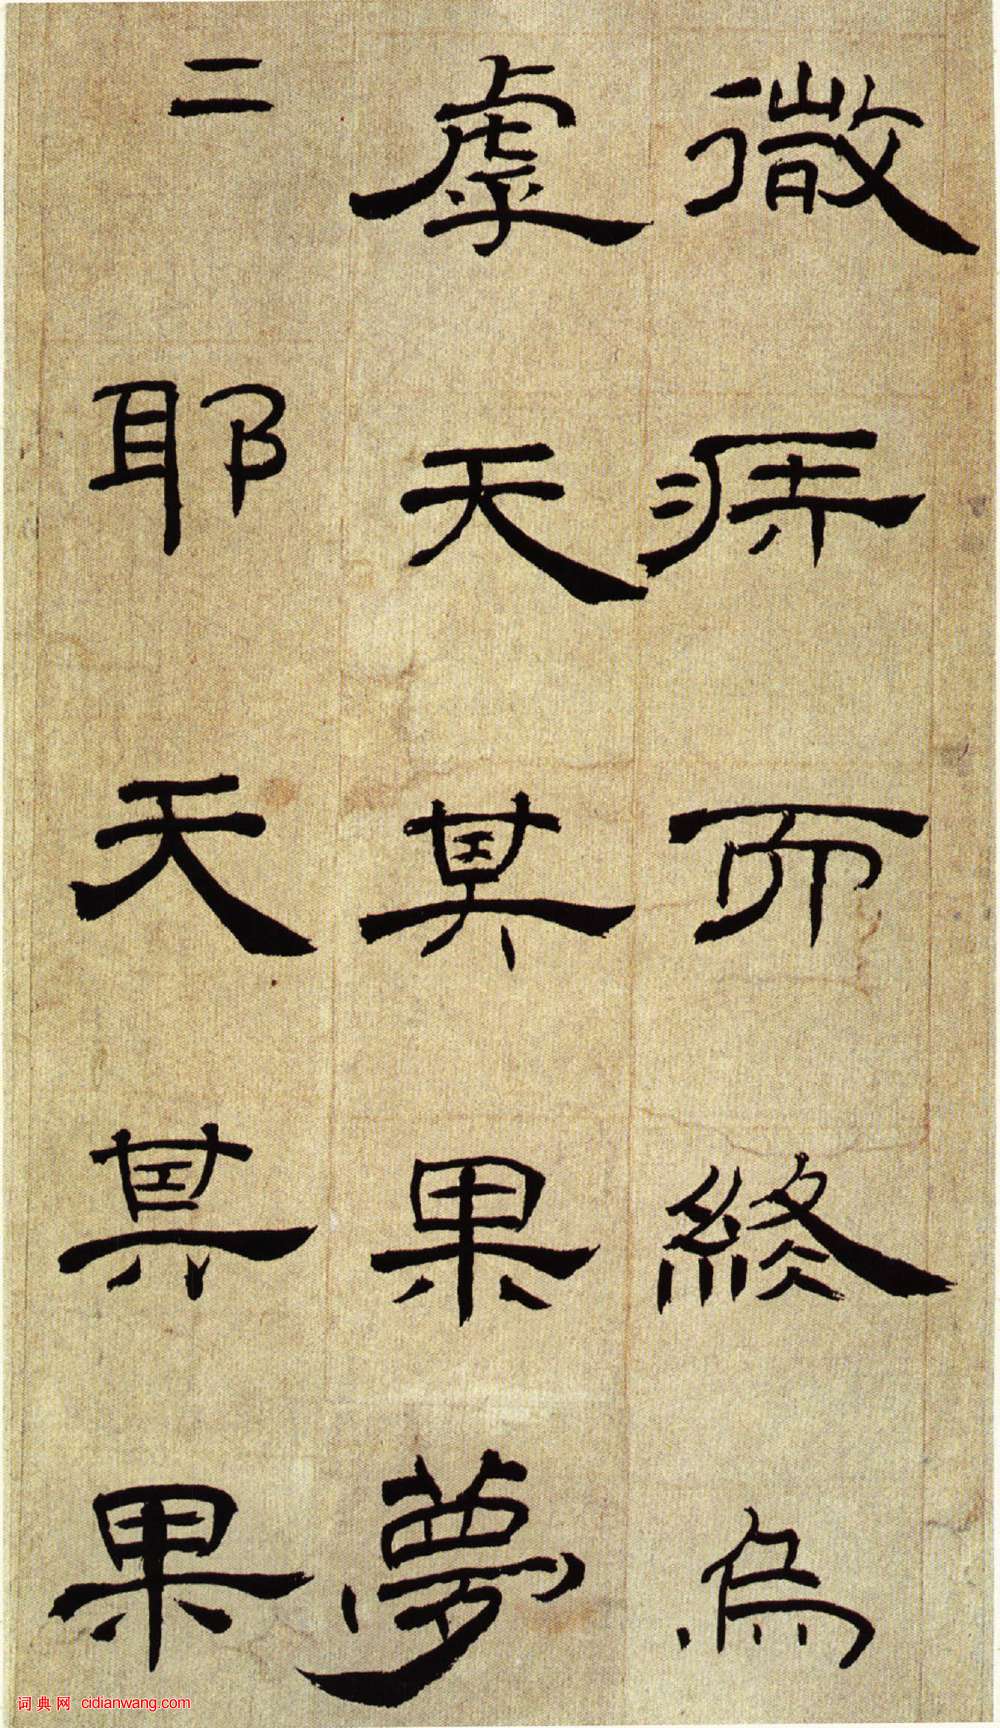 微疾而終烏
虖天其果夢
二耶天其果
词典网 cidianwang.com